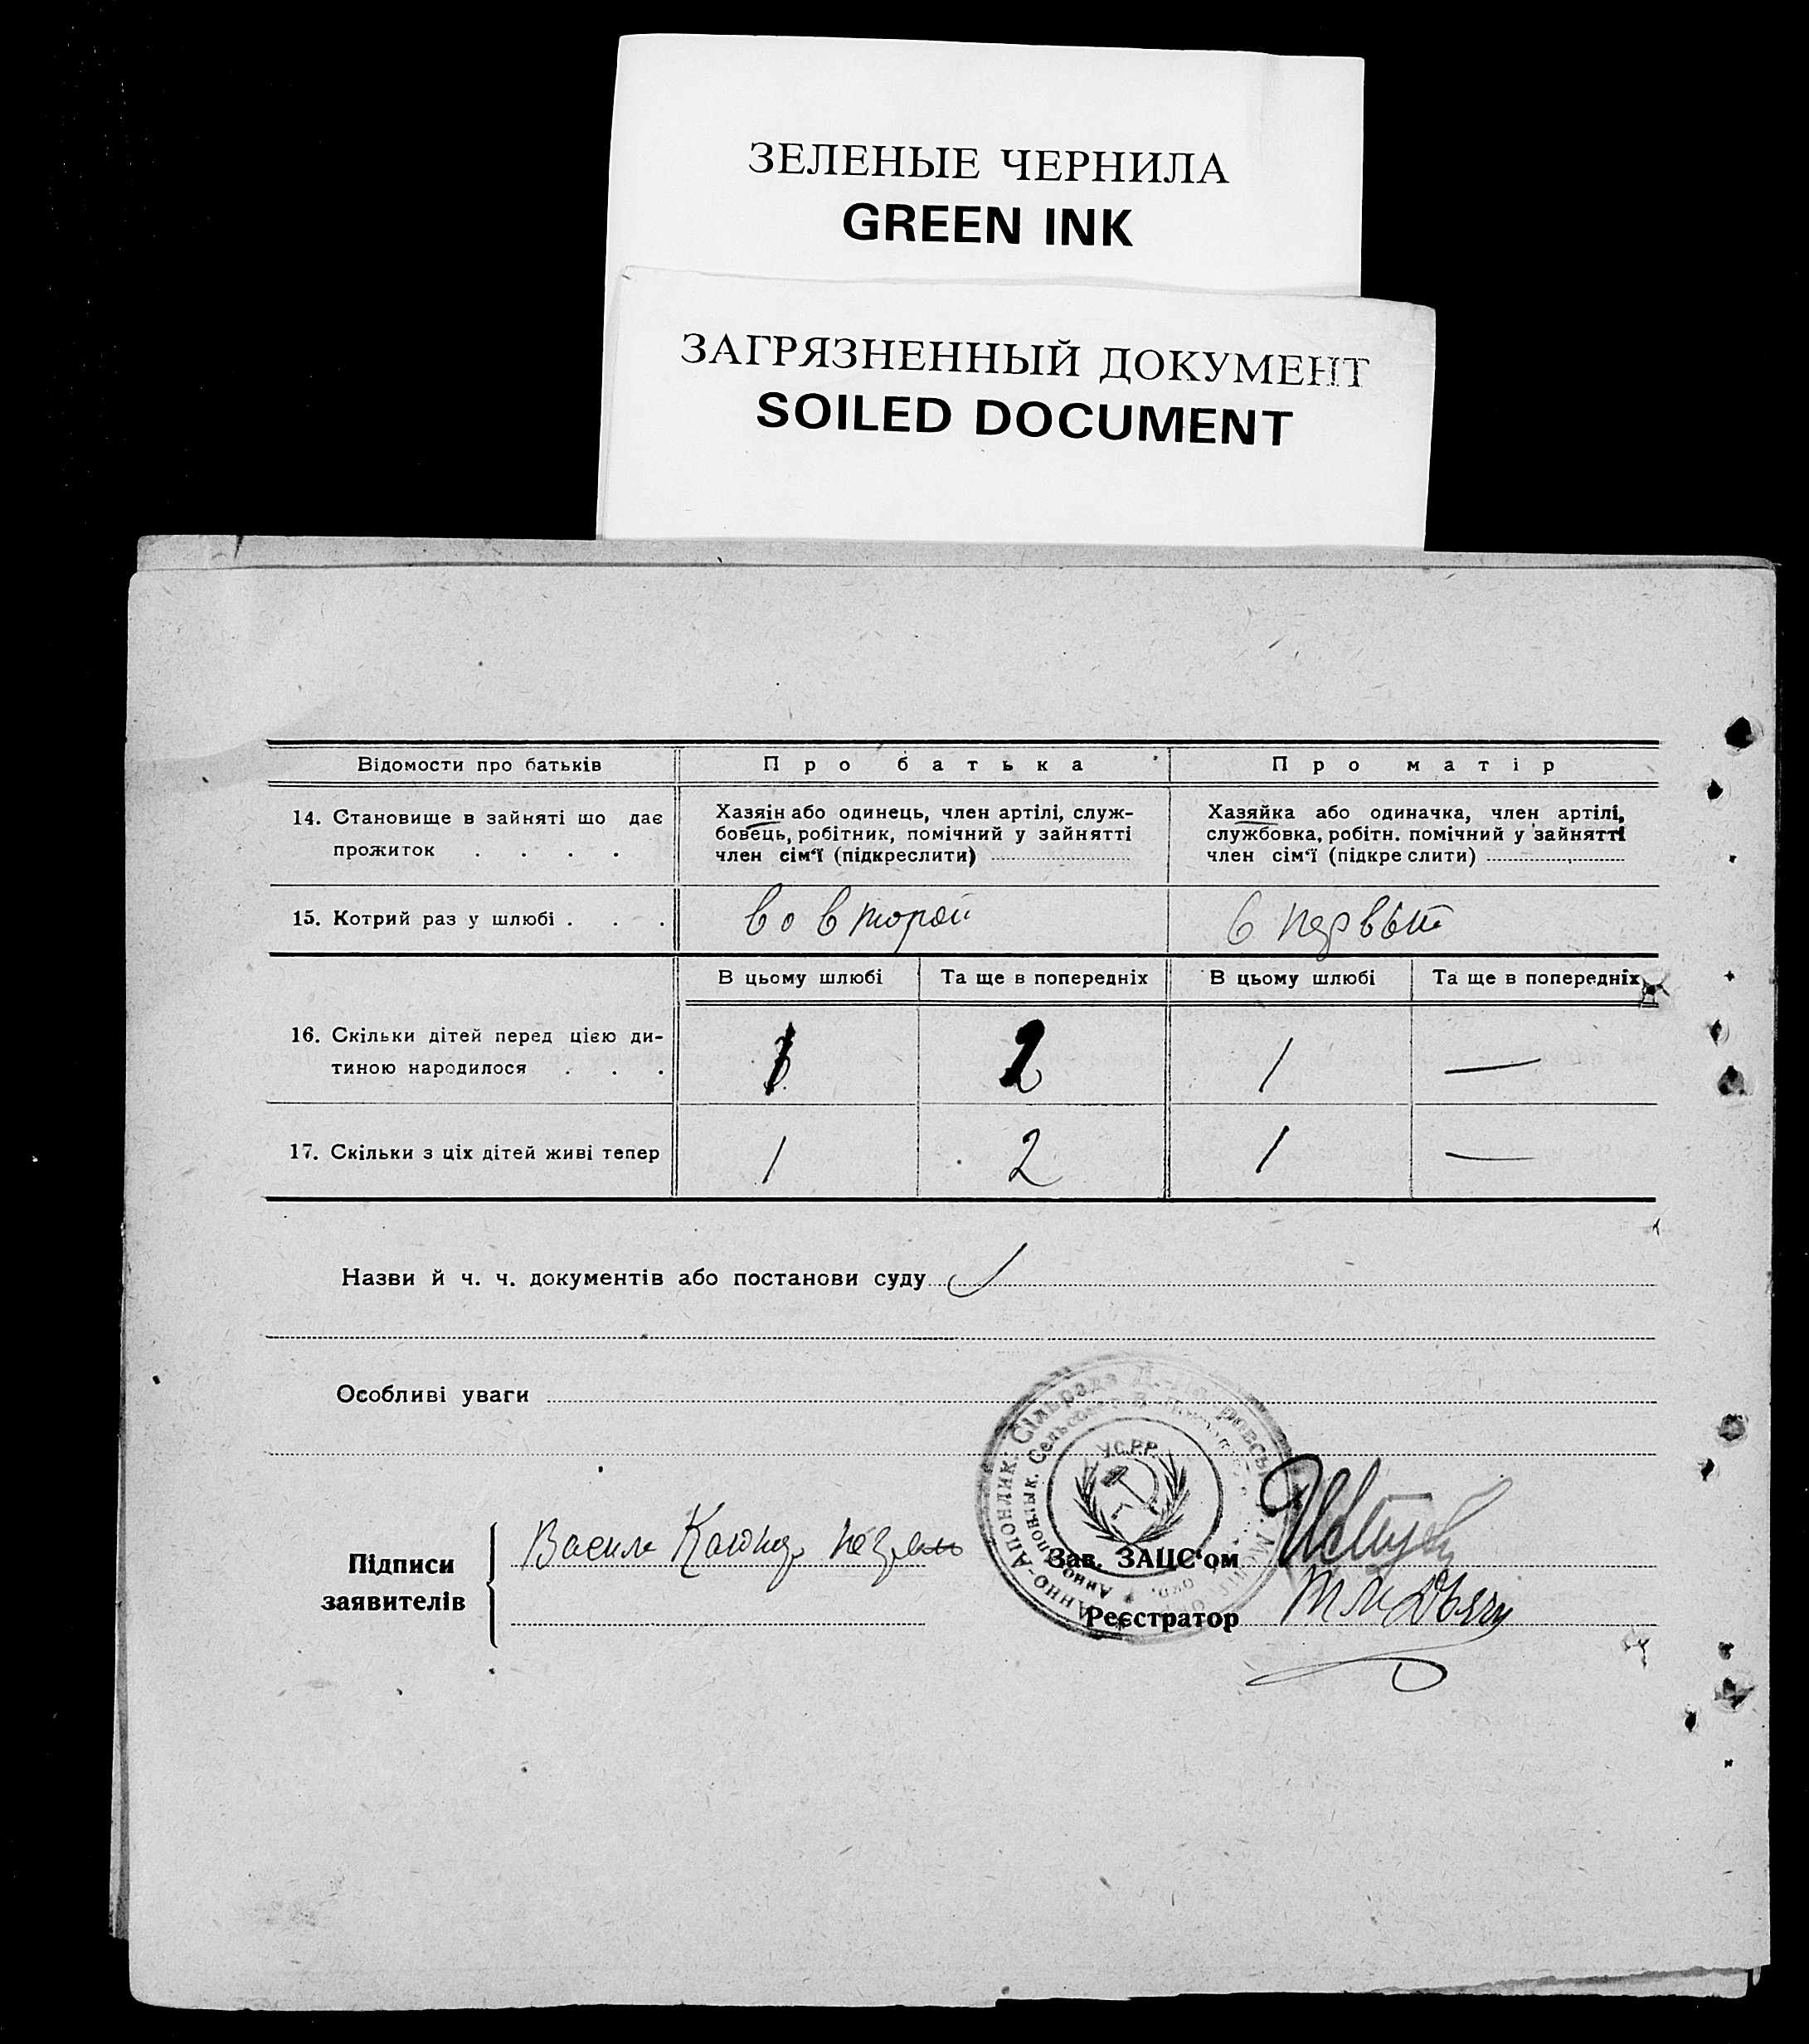 ЗЕЛЕНЫЕ ЧЕРНИЛА
GREEN INK
ЗАГРЯЗНЕННЫЙ ДОКУМЕНТ
SOILED DOCUMENT
Відомости про батьків
Про батька
Про матір
14. Становище в зайняті що дає
прожиток . . . .
Хазяїн або одинець, член артілі, служ-
бовець, робітник, помічний у зайнятті
член сім‘ї (підкреслити)
Хазяйка або одиначка, член артілі,
службовка, робітн. помічний у зайнятті
член сім‘ї (підкреслити)
15. Котрий раз у шлюбі . . .
во второй
в первый
В цьому шлюбі
Та ще в попередніх
В цьому шлюбі
Та ще в попередніх
16. Скільки дітей перед цією ди-
тиною народилося . . .
1
2
1
—
17. Скільки з ціх дітей живі тепер
1
2
1
—
Назви й ч. ч. документів або постанови суду
Особливі уваги
У.С.Р.Р.
АННО-АПОНЛИК. Сільрада
Сельсовет
Підписи
заявителів
Васил
Зав. ЗАЦС‘ом
Реєстратор